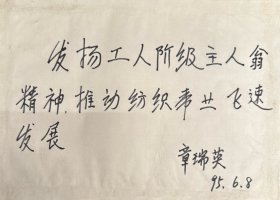 发扬工人阶级主人翁
精神,推动纺织事业飞速
发展
章瑞英
95.6.8